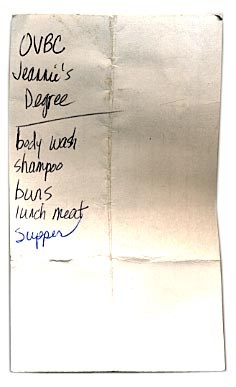 OVBC
Jeannie's
Degree
body wash
shampoo
buns
lunch meat
supper